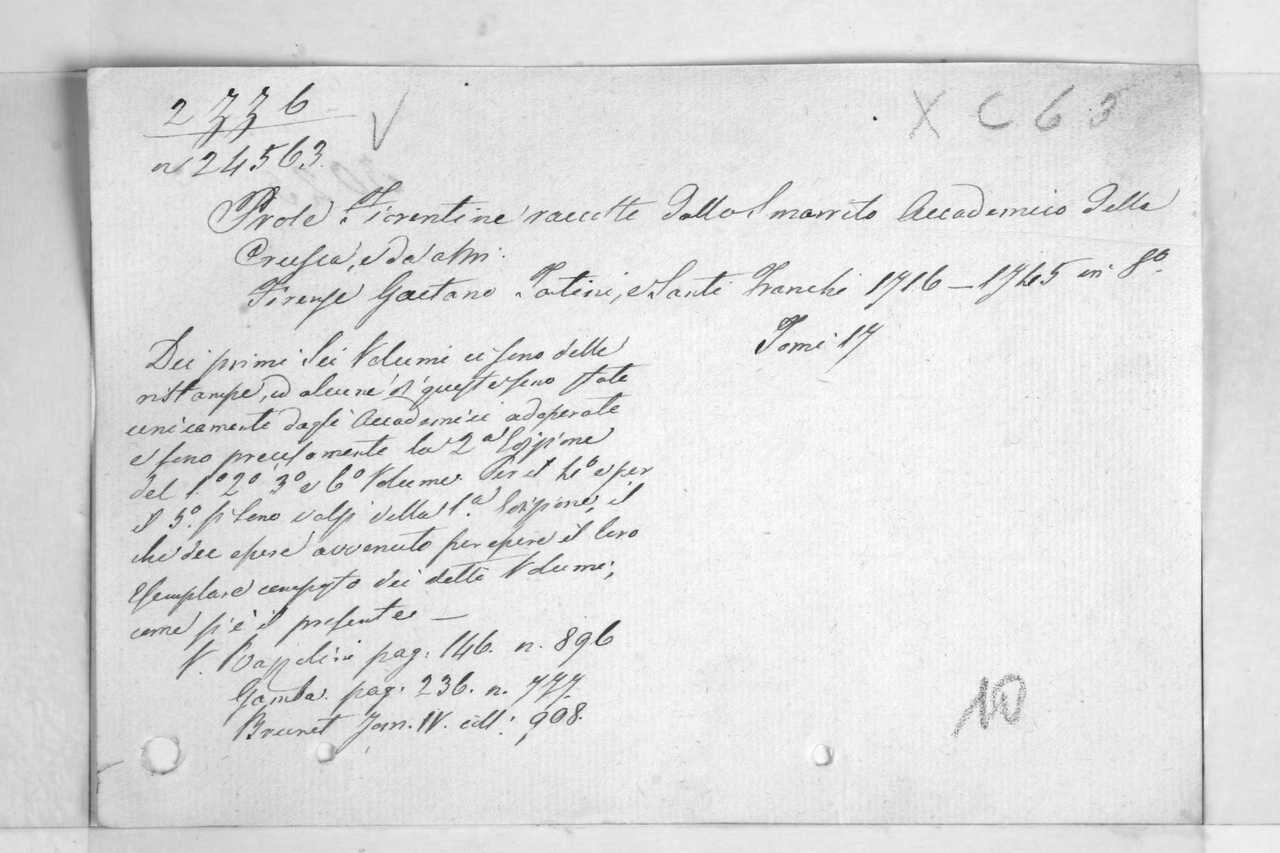 2776
n 24563.
X C 6 3
Prose Fiorentine raccolte dallo Smarrito Accademico della
Crusca, e da altri.
Firenze Gaetano Tartini, e Santi Franchi 1716 — 1745 in 8º
Tomi 17
Dei primi sei Volumi ci sono delle
ristampe, ed alcune di queste sono state
unicamente dagli Accademici adoperate
e sono precisamente la 2ª Edizione
del 1.º 2º. 3º e 6º Volume. Per il 4º e per
il 5º. si sono valsi della 1.ª Edizione, il
che dee essere avvenuto per essere il loro
Esemplare composto dei detti Volumi,
come si è il presente —
V. Razzolini pag. 146. n. 896
Gamba. pag. 236. n. 777.
Brunet Tom. IV. coll. 908.
10